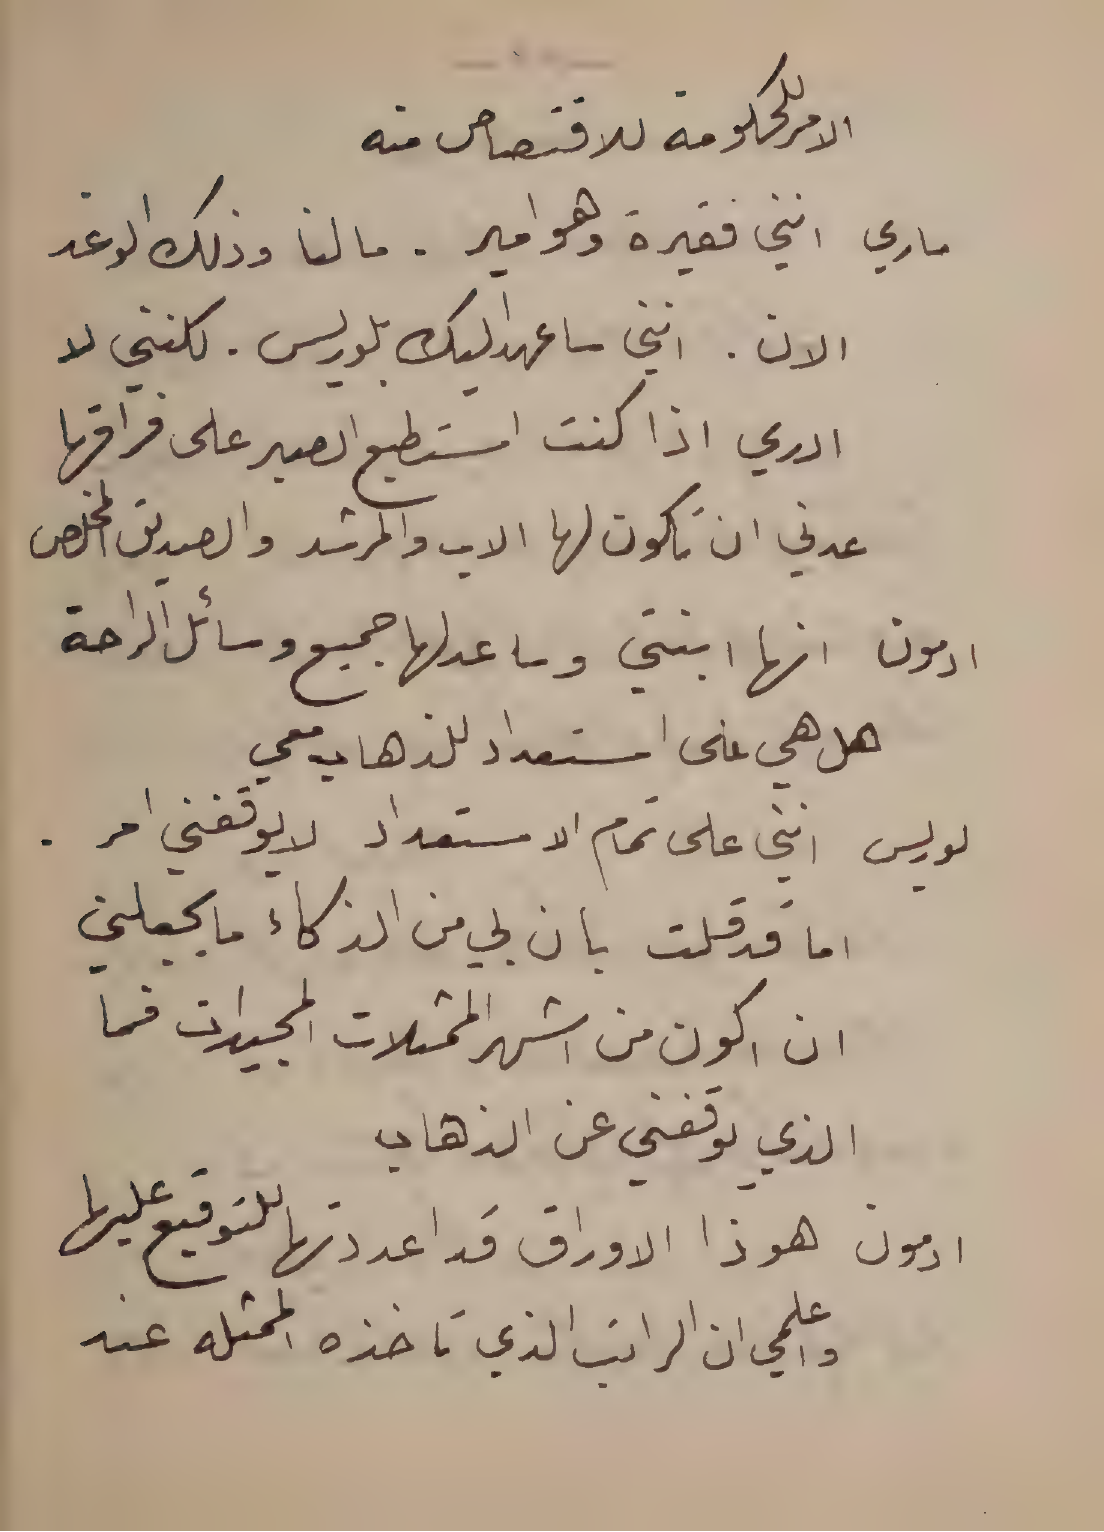 الامر للحكومة للاقتصاص منه
ماري انني فقيرة وهو امير . ما لنا وذلك الوغد
الان . انني ساعهد اليك بلوريس . لكنني لا
ادري اذا كنت استطيع الصبر على فراقها
عدني ان تكون لها الاب والمرشد والصديق المخلص
ادمون انها ابنتي وساعد لها جميع وسائل الراحة
هل هي على استعداد للذهاب معي
لوريس انني على تمام الاستعداد لا يوقفني امر .
اما قد قلت بان لي من الذكاء ما يجعلني
ان اكون من اشهر الممثلات المجيدات فما
الذي يوقفني عن الذهاب
ادمون هوذا الاوراق قد اعددتها للتوقيع عليها
واعلمي ان الراتب الذي تاخذه الممثله عند